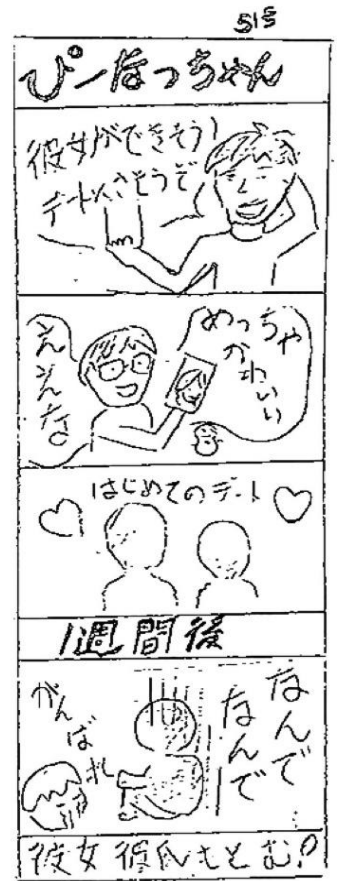 51号
ぴーなっちゃん
彼女ができそう!
デートにさそうぞ
めっちゃ
かわいい
ええな
はじめてのデート
1週間後
なんで
なんで
がんばれ
彼女 彼氏もとむ!?